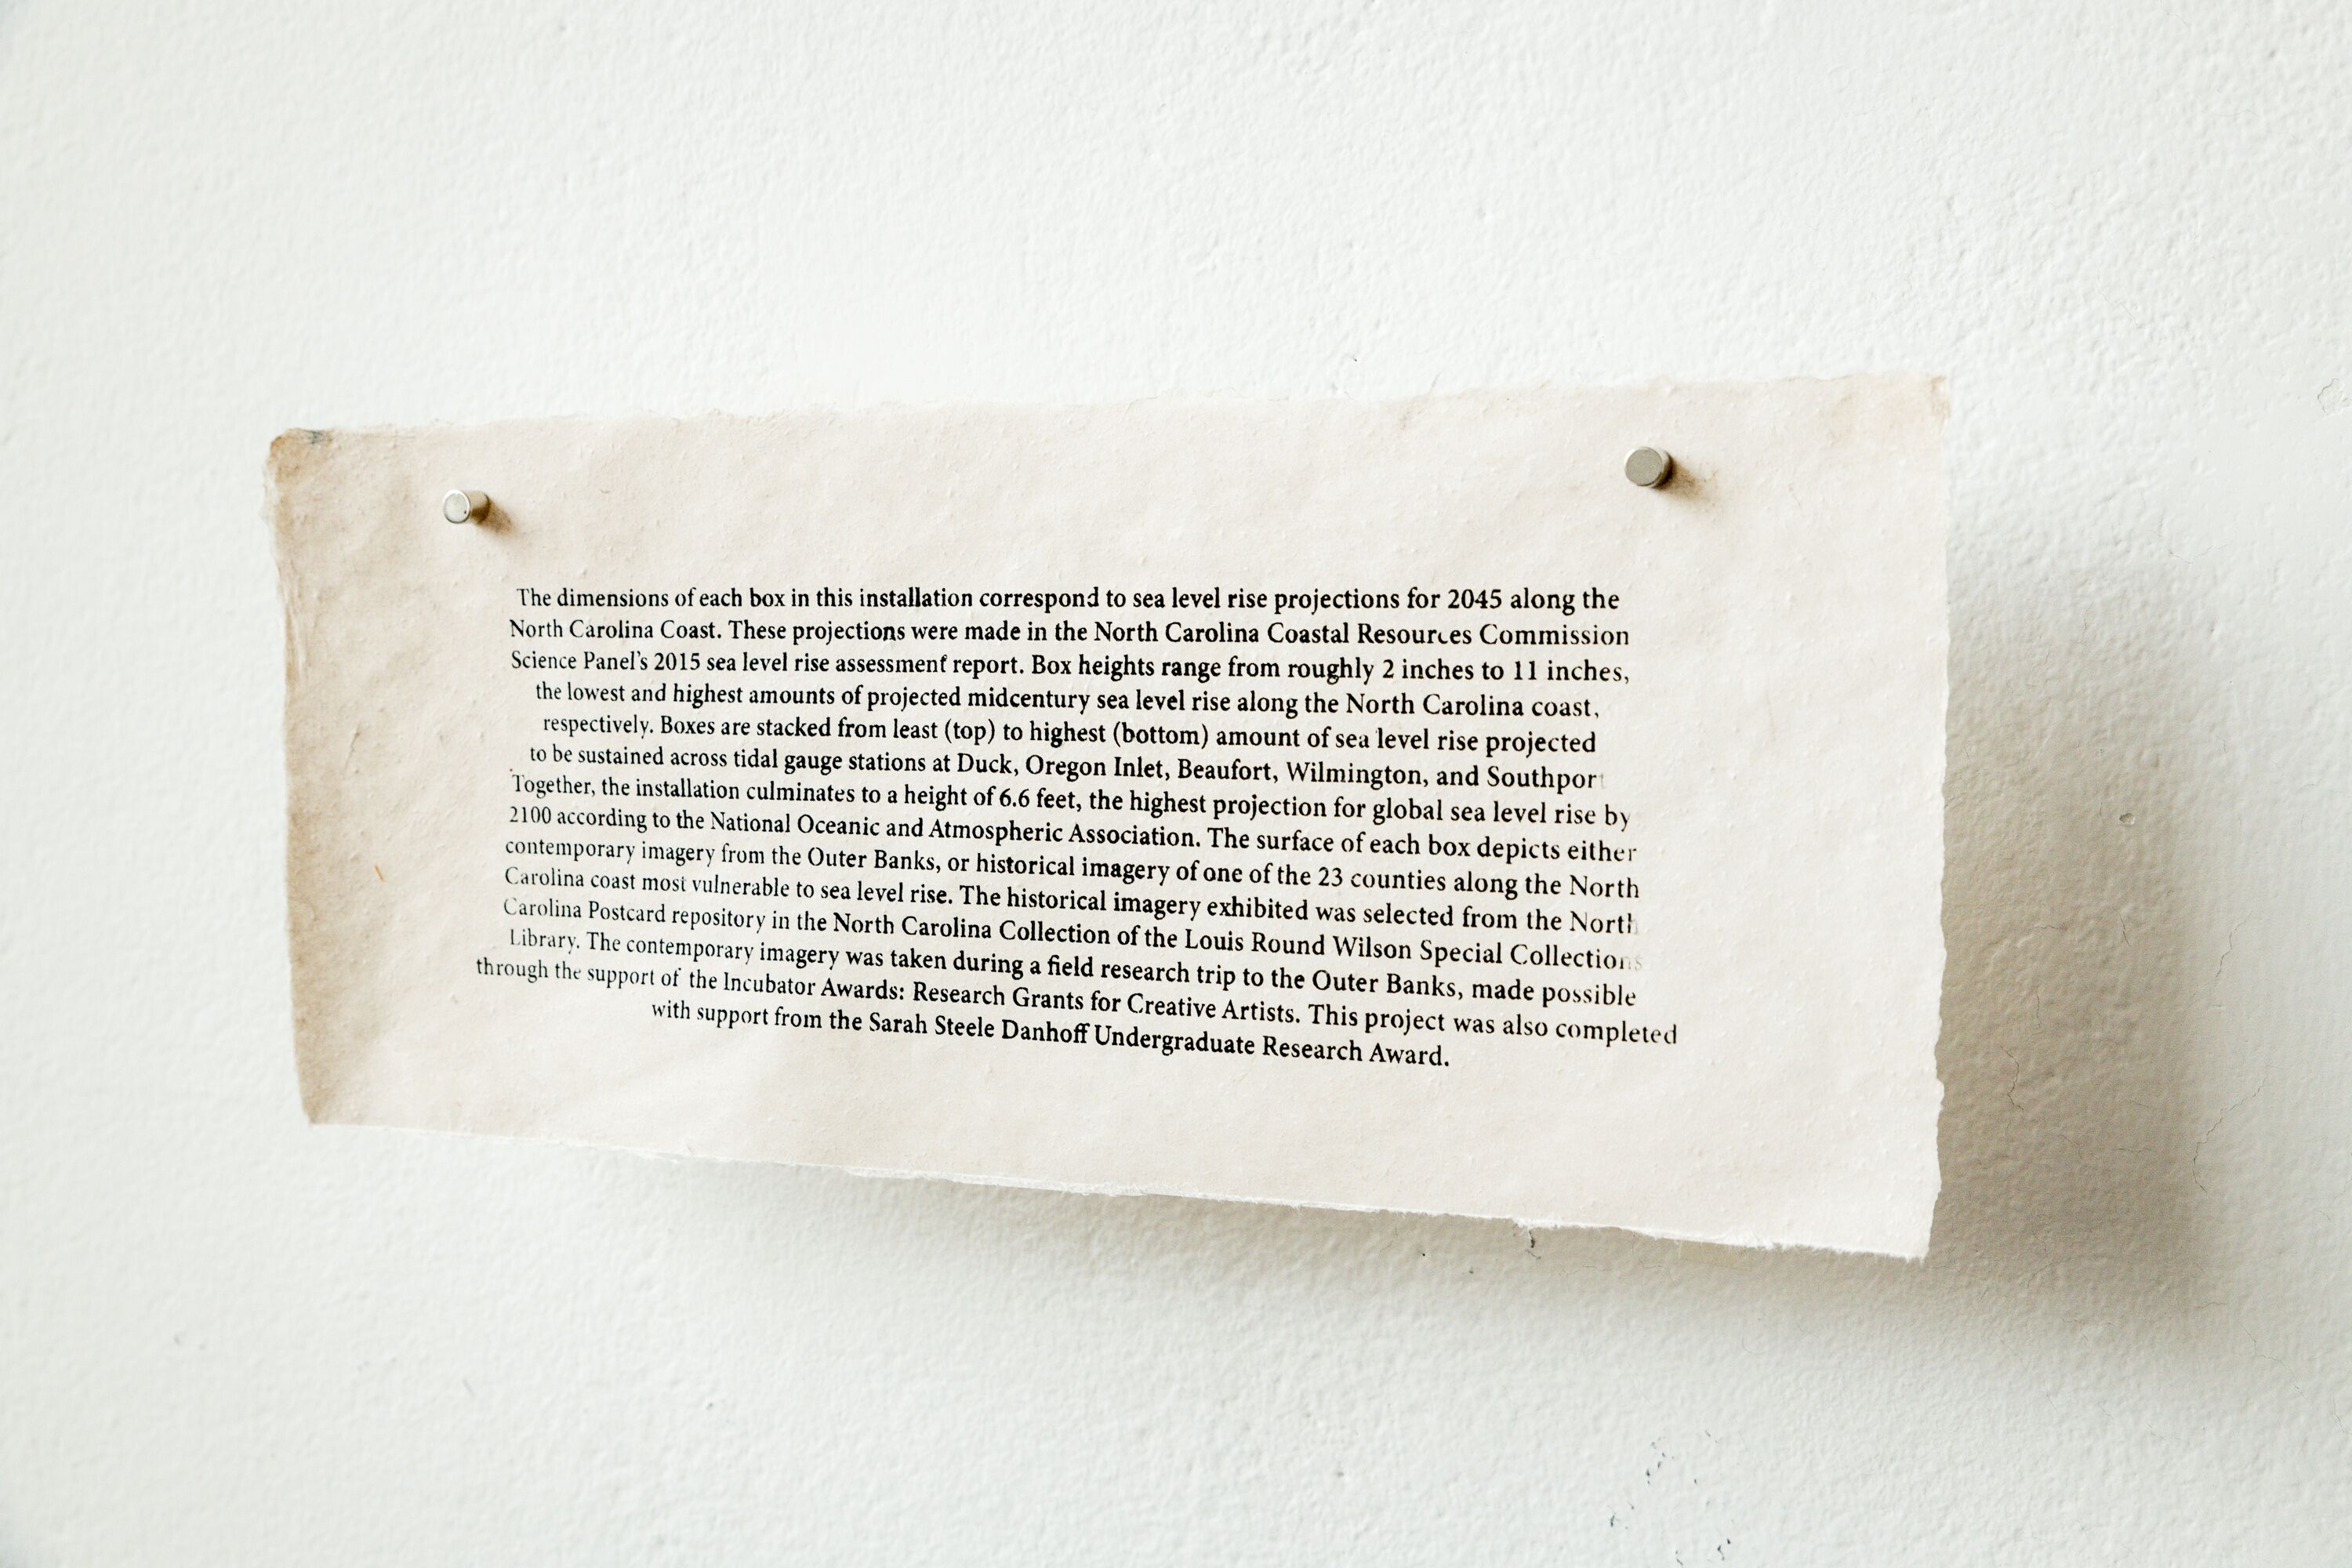 The dimensions of each box in this installation correspond to sea level rise projections for 2045 along the
North Carolina Coast. These projections were made in the North Carolina Coastal Resources Commission
Science Panel's 2015 sea level rise assessment report. Box heights range from roughly 2 inches to 11 inches,
the lowest and highest amounts of projected midcentury sea level rise along the North Carolina coast,
respectively. Boxes are stacked from least (top) to highest (bottom) amount of sea level rise projected
to be sustained across tidal gauge stations at Duck, Oregon Inlet, Beaufort, Wilmington, and Southport
Together, the installation culminates to a height of 6.6 feet, the highest projection for global sea level rise by
2100 according to the National Oceanic and Atmospheric Association. The surface of each box depicts either
contemporary imagery from the Outer Banks, or historical imagery of one of the 23 counties along the North
Carolina coast most vulnerable to sea level rise. The historical imagery exhibited was selected from the North
Carolina Postcard repository in the North Carolina Collection of the Louis Round Wilson Special Collections
Library. The contemporary imagery was taken during a field research trip to the Outer Banks, made possible
through the support of the Incubator Awards: Research Grants for Creative Artists. This project was also completed
with support from the Sarah Steele Danhoff Undergraduate Research Award.